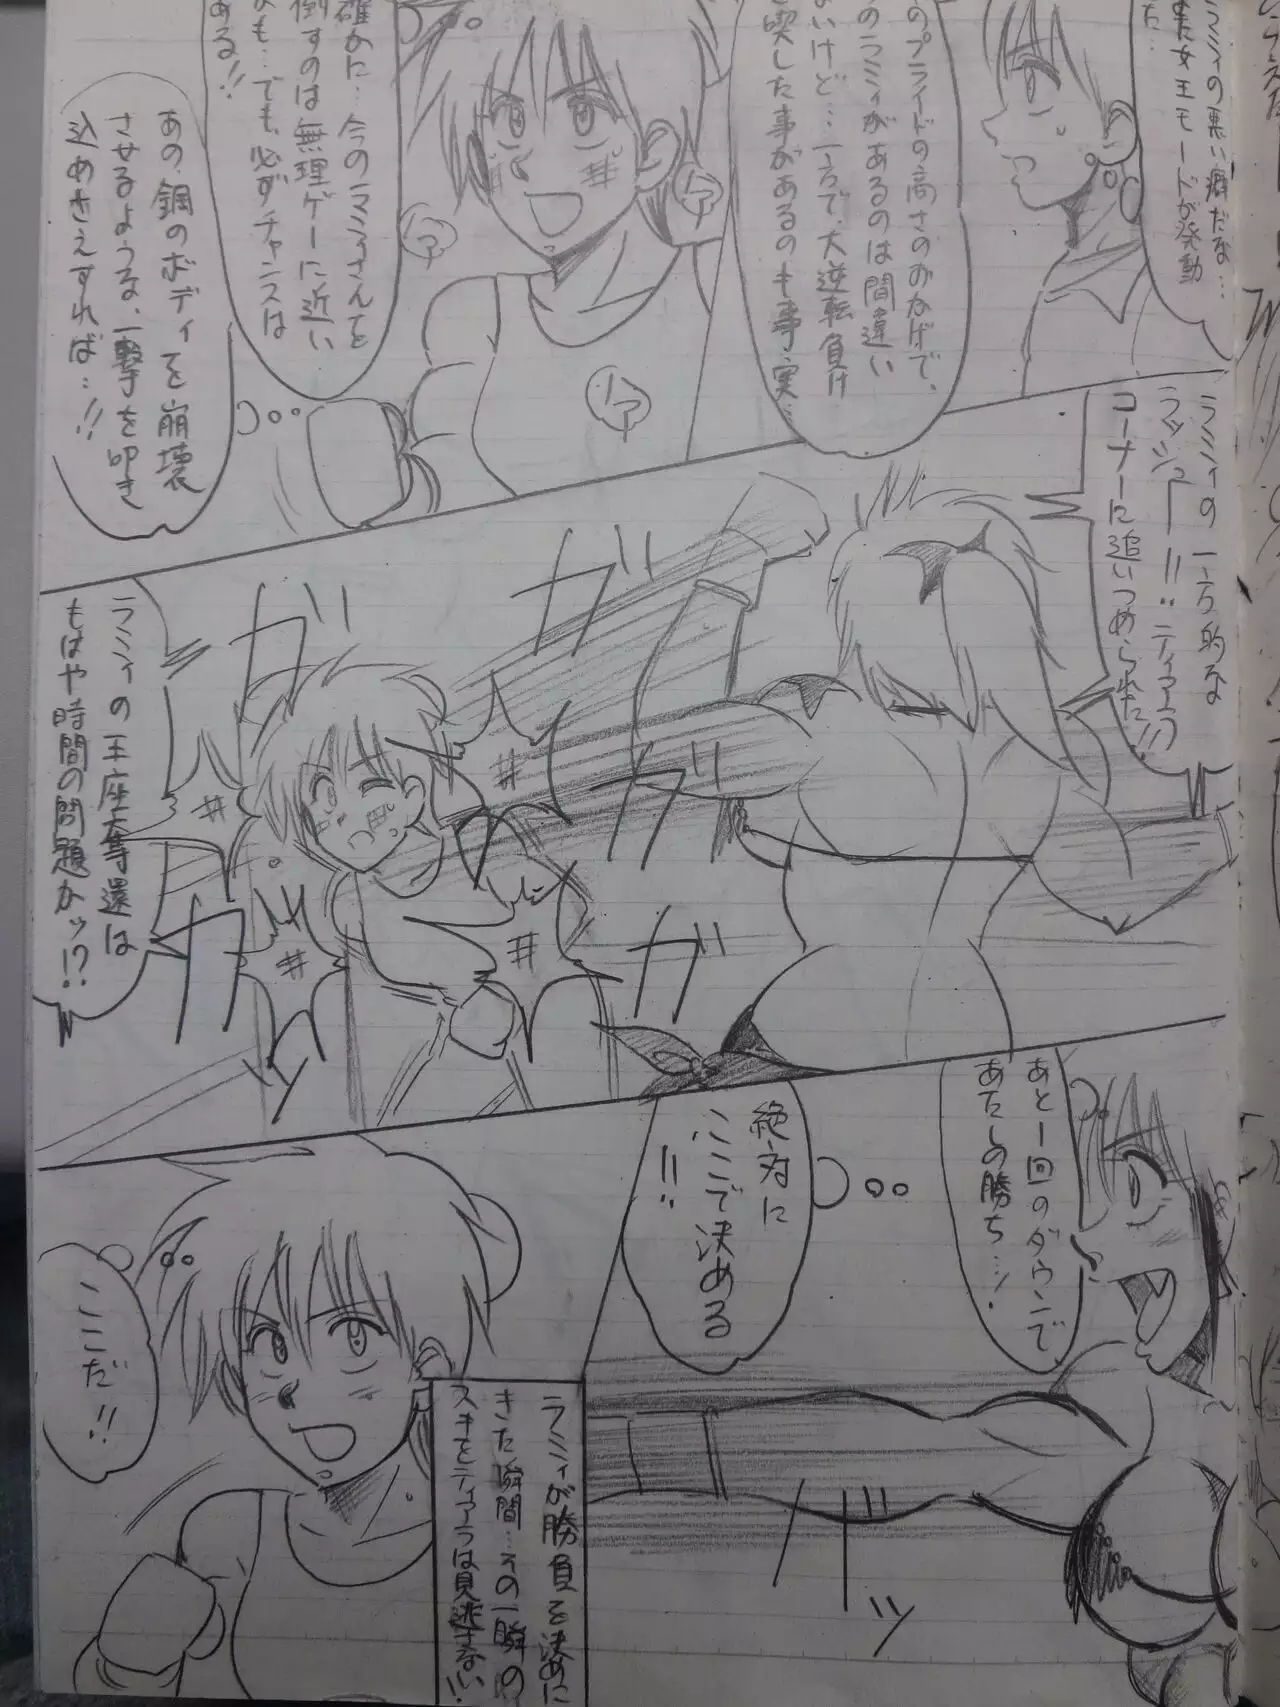 ラミィの悪い癖だな…
また女王モードが発動
た…
のプライドの高さのおかげで、
のラミィがあるのは間違い
ないけど…一方で、大逆転負け
を喫した事があるのも事実…
確かに…今のラミィさんを
倒すのは無理ゲーに近い
かも…でも、必ずチャンスは
ある!!
ハァ
ハァ
ハァ
あの、鋼のボディを崩壊
させるような、一撃を叩き
込めさえすれば…!!
ラミィの一方的な
ラッシュー!!ティアラ
コーナーに追いつめられた!!
ガ
ガ
ガ
ガ
ガ
ッ
ラミィの王座奪還は
もはや時間の問題かッ!?
あと1回のダウンで
あたしの勝ち…!
絶対に
ここで決める
!!
バ
ッ
ラミィが勝負を決めに
きた瞬間…その一瞬の
スキをティアラは見逃さない!
ここだ!!